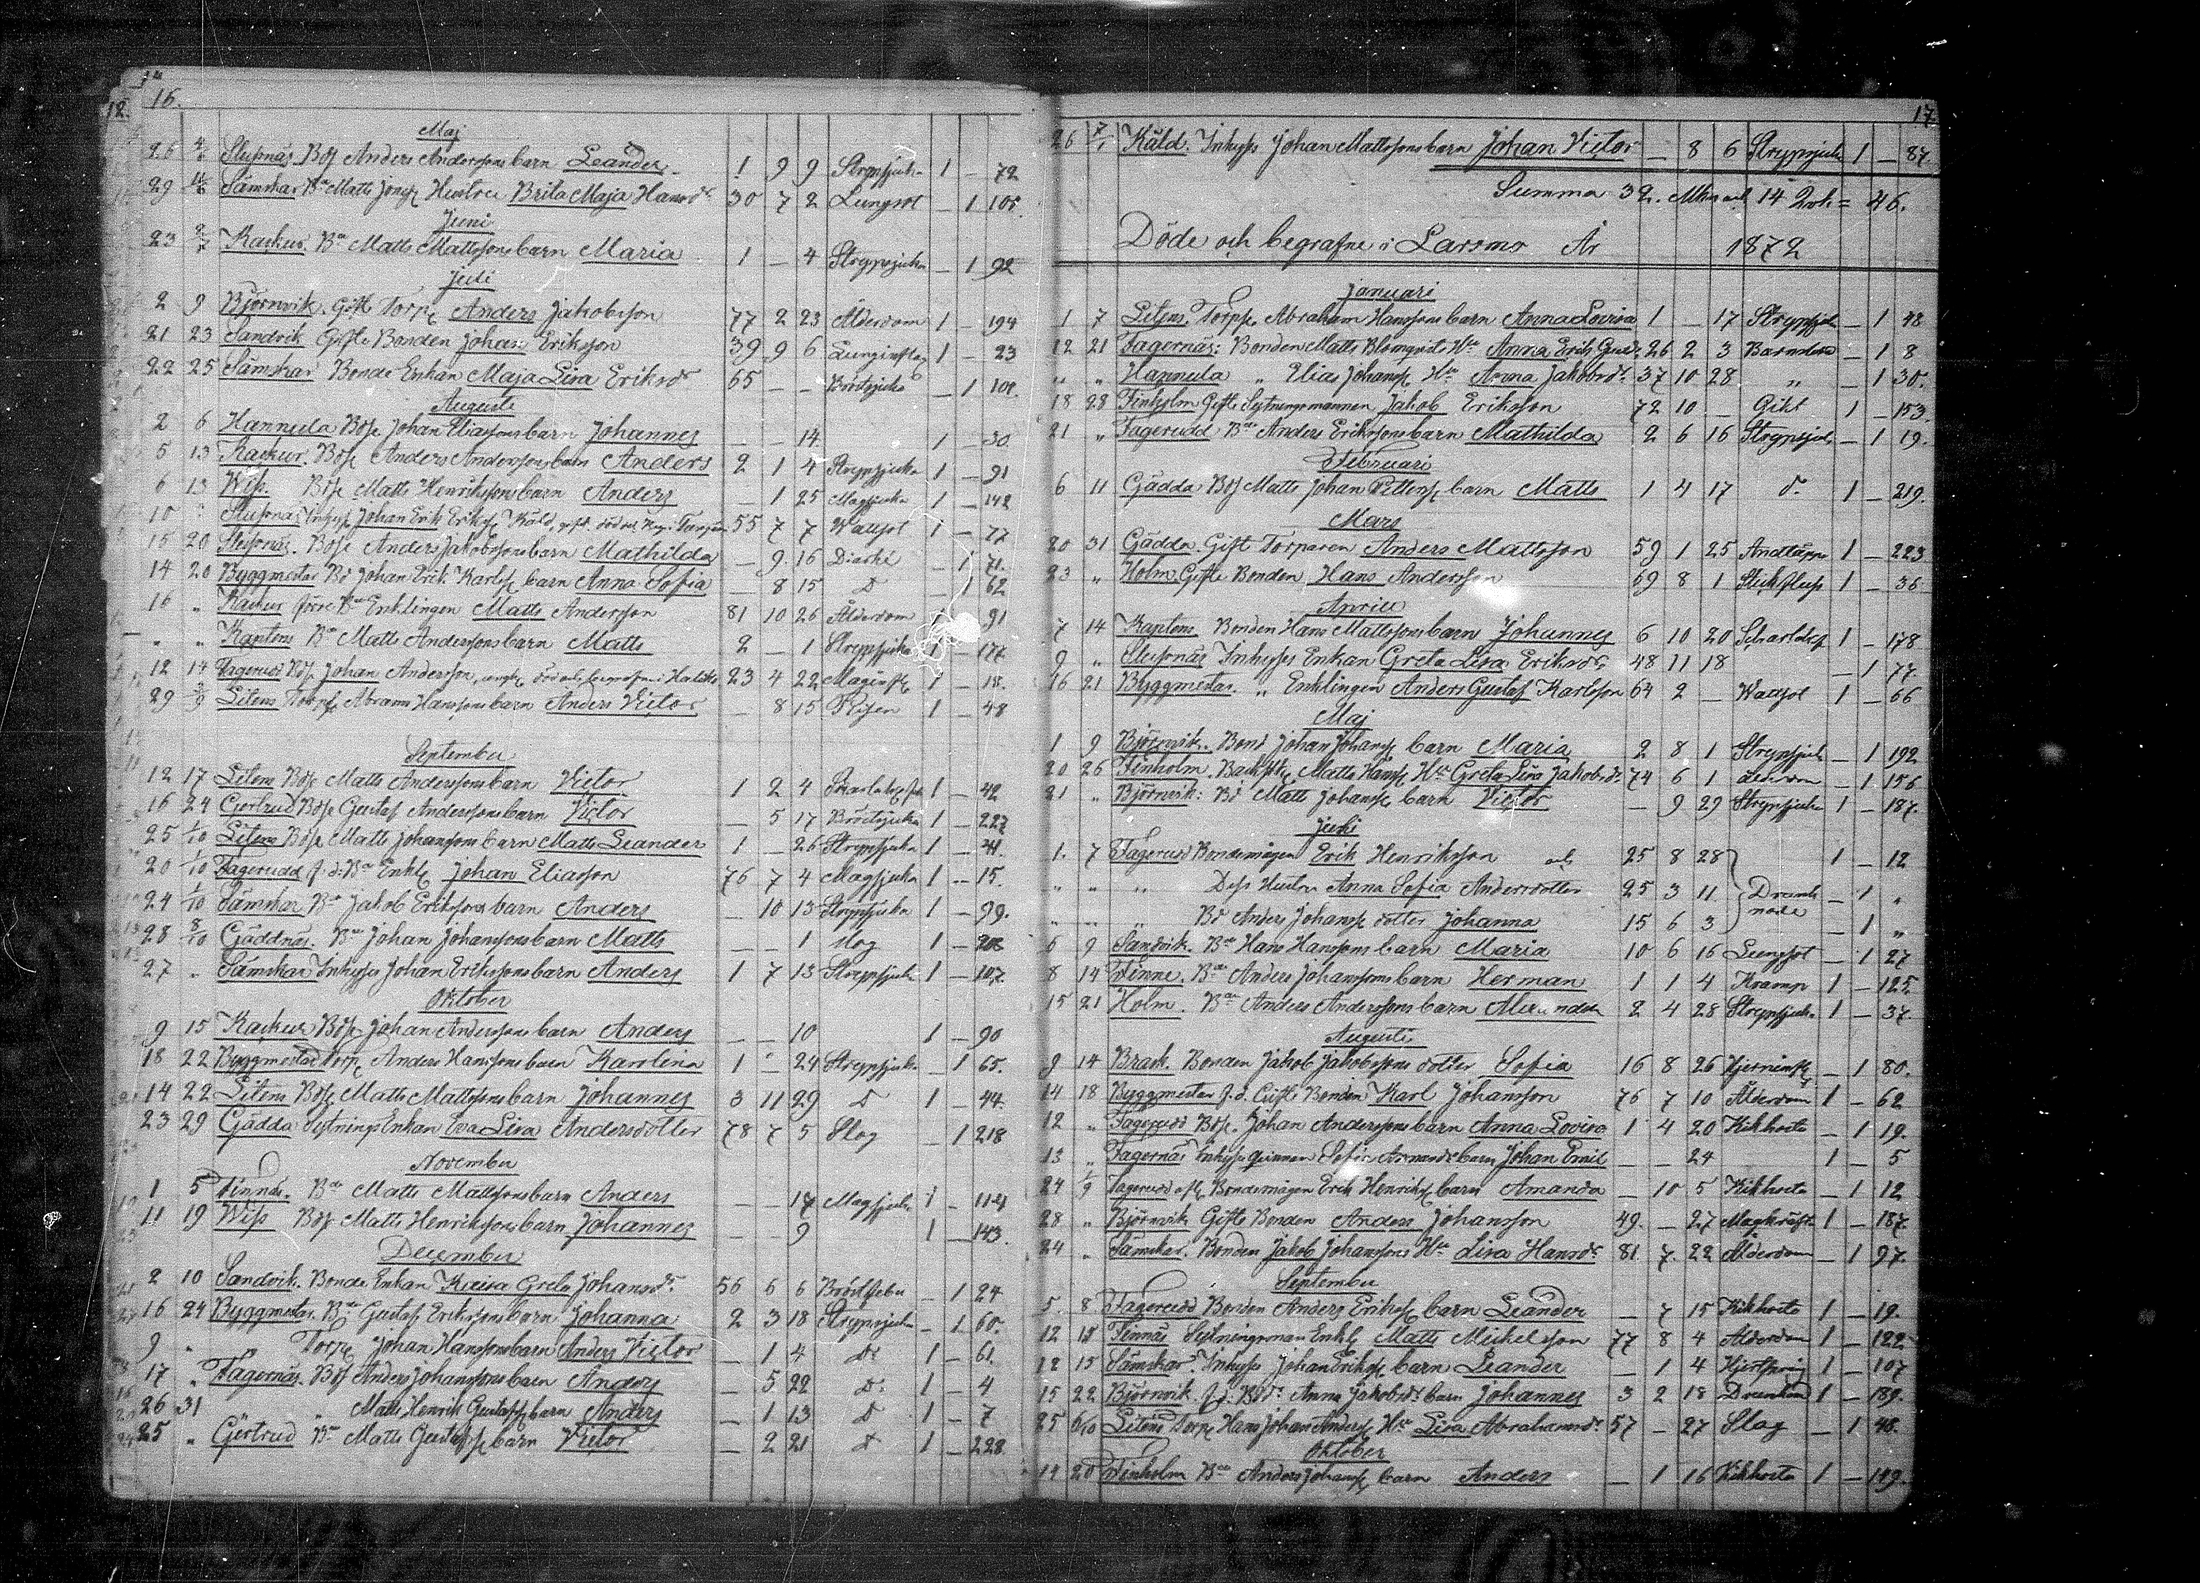 16.
12.
Maj
26 4/6 Slussnäs Bdſ Anders Anderssons barn Leander 1 9 9 Strypsjuka 1 — 72
29 11/6 Sämskar Bn Matts Hustru Brita Maja Hansdr 30 7 2 Lungsot — 1 105.
Juni
23 2/7 Kackur Bn Matts Mattssons barn Maria 1 — 4 Strypsjuka — 1 92
Juli
2 9 Björnvik. Gift Torp Anders Jakobsson 77 2 23 Ålderdom 1 — 194
21 23 Sandvik Gifte Bonden Johan Eriksson 39 9 6 Lunginflag 1 — 23
22 25 Sämskar Bonde Enkan Maja Lisa Eriksdr 65 — — Bröstsjuka — 1 101.
Augusti
2 6 Hannula Bdſ Johan Eliassons barn Johannes — — 14 1 — 30
5 13 Kackur. Bdſ Anders Anderssons barn Anders 2 1 4 Strypsjuka 1 — 91
6 13 Wiss Bdſ Matts Henrikssons barn Anders — 1 25 Magsjuka 1 — 142
10 " Slussnäs Inhyss Johan Erik Eriks Käld, 55 7 7 Wattsot 1 — 77
15 20 Slussnäs. Bdſ Anders Jakobssons barn Mathilda — 9 16 Diarhé — 1 71.
14 20 Byggmestar Bd Johan Erik Karls barn Anna Sofia — 8 15 D — 1 62
16 " Kackur förre Bn Enklingen Matts Andersson 81 10 26 Ålderdom 91
— " Kaptens Bn Matts Anderssons barn Matts 2 — 1 Strypsjuka 1 — 177
12 14 Fagerudd Bdſ Johan Andersson, 23 4 22 Maginfl 1 — 18.
29 3/9 Litens Torp Abram Hanssons barn Anders Victor — 8 15 Risen 1 — 48
September
12 17 Litens Bdſ Matts Anderssons barn Victor 1 2 4 1 — 42
16 24 Gertrud Bdſ Gustaf Anderssons barn Victor — 5 17 Bröstsjuka 1 — 227
25 1/10 Litens Bdſ Matts Johanssons barn Matts Leander 1 — 26 Strypsjuka 1 — 41.
20 1/10 Fagerudd f.d. Bn Enkl Johan Eliasson 76 7 4 Magsjuka 1 — 15.
24 1/10 Sämskar Bn Jakob Erikssons barn Anders — 10 13 Strypsjuka 1 — 99.
28 8/10 Gäddnäs. Bn Johan Johanssons barn Matts — — 1 Slag 1 —
27 " Sämskar Inhyss Johan Erikssons barn Anders 1 7 13 Strypsjuka 1 — 107.
Oktober
9 15 Kackur Bdſ Johan Anderssons barn Anders — — 10 1 — 90
18 22 Byggmestar Torp Anders Hanssons barn Karolina 1 — 24 Strypsjuka — 1 65.
14 22 Litens Bdſ Matts Mattssons barn Johannes 3 11 29 D 1 — 44.
23 29 Gädda Sytnings Enkan Eva Lisa Andersdotter 78 7 5 Slag — 1 218
November
1 5 Finnäs. Bn Matts Mattssons barn Anders — — 17 Magsjuka 1 — 114
11 19 Wiss Bdſ Matts Henrikssons barn Johannes — — 9 1 — 143.
December
2 10 Sandvik. Bonde Enkan Kajsa Greta Johansdr 56 6 6 Bröstfeber — 1 24
16 24 Byggmestar. Bn Gustaf Erikssons barn Johanna 2 3 18 Strypsjuka — 1 60.
9 " " Torp Johan Hanssons barn Anders Victor — 1 4 Do 1 — 61.
17 " Fagernäs. Bdſ Anders Johanssons barn Anders — 5 22 D. 1 — 4
26 31 " Matts Henrik Gustafs barn Anders — 1 13 D 1 — 7
25 " Gertrud Bn Matts Gustafs barn Victor — 2 21 D 1 — 228
17
26 7/1 Käld. Inhyss Johan Mattssons barn Johan Victor — 8 6 Strypsjuka 1 — 87.
Summa 32. Mkön och 14 Qvk = 46.
Döde och begrafne i Larsmo År 1872
Januari
1 7 Litens. Torp Abraham Hanssons barn Anna Lovisa 1 — 17 Strypsjuk — 1 48
12 21 Fagernäs: Bonden Matts Blomqvists Hu Anna Erik 26 2 3 Barnsbörd — 1 8
" " Hannula " Elias Johanss Hu Anna Jakobsdr 37 10 28 " — 1 30.
18 28 Finholm Gifte Sytningsmannen Jakob Eriksson 72 10 — Gikt 1 — 153.
21 " Fagerudd Bn Anders Erikssons barn Mathilda 2 6 16 Strypsjuk — 1 19.
Februari
6 11 Gädda Bdſ Matts Johan Petters barn Matts 1 4 17 d. 1 — 219.
Mars
20 31 Gädda. Gift Torparen Anders Mattsson 59 1 25 Andtäppa 1 — 223
23 " Holm. Gifte Bonden Hans Andersson 59 8 1 Stickfluss 1 — 36
Aprill
7 14 Kaptens Bonden Hans Mattssons barn Johannes 6 10 20 1 — 178
9 " Slussnäs Inhyses Enkan Greta Lisa Eriksdr 48 11 18 — 1 77.
16 21 Byggmestar. " Enklingen Anders Gustaf Karlsson 64 2 — Wattsot 1 — 66
Maj
1 9 Björnvik. Bond Johan Johanss barn Maria 2 8 1 Strypsjuk — 1 192
20 26 Finholm. Matts Hanss Hu Greta Lisa Jakobsdr 74 6 1 — 1 156
21 " Björnvik: Bd Matts Johanss barn Victor — 9 29 Strypsjuka — 1 — 187.
Juli
1. 7 Fagerudd Bondemågen Erik Henriksson och 25 8 28 1 — 12
" " " Dess Hustru Anna Sofia Andersdotter 25 3 11 Drunk — 1 "
" " " Bd Anders Johanss dotter Johanna 15 6 3 nade — 1 "
6 9 Sandvik. Bn Hans Hanssons barn Maria 10 6 16 Lungsot — 1 27
8 14 Finne. Bn Anders Johanssons barn Herman 1 1 4 Kramp 1 — 125.
15 21 Holm. Bn Anders Anderssons barn Alexander 2 4 28 Strypsjuka 1 — 37.
Augusti
9 14 Brask. Bonden Jakob Jakobssons dotter Sofia 16 8 26 Hjerninfl — 1 80.
14 18 Byggmestar f.d. Gifte Bonden Karl Johansson 76 7 10 Ålderdom 1 — 62
12 " Fagerudd Bdſ. Johan Anderssons barn Anna Lovisa 1 4 20 Kikhosta — 1 19.
13 " Fagernäs Inhyses qvinnan Sofia barn Johan Emil — — 24 1 — 5
24 1/9 Fagerudd afl. Bondemågen Erik Henriks barn Amanda — 10 5 Kikhosta — 1 12
28 " Björnvik Gifte Bonden Anders Johansson 49. — 27 Magkräfta 1 — 187.
24 " Sämskar. Bonden Jakob Johanssons Hu Lisa Hansdr 81 7. 22 Ålderdom — 1 97.
September
5. 8 Fagerudd Bonden Anders Eriks barn Leander — 7 15 Kikhosta 1 — 19.
12 15 Finnäs Sytningsman Enkl Matts Michelsson 77 8 4 Ålderdom 1 — 122
12 15 Sämskar. Inhyss Johan Eriks barn Leander — 1 4 1 — 107
15 22 Björnvik f.d. Bdd. Anna Jakobsdr barn Johannes 3 2 18 Drunknad 1 — 189.
25 6/10 Litens Torp Hans Johan Anderss Hu Lisa Abrahamsdr 57 — 27 Slag — 1 48.
Oktober
14 20 Finholm Bn Anders Johanss barn Anders — 1 16 Kikhosta 1 — 149.